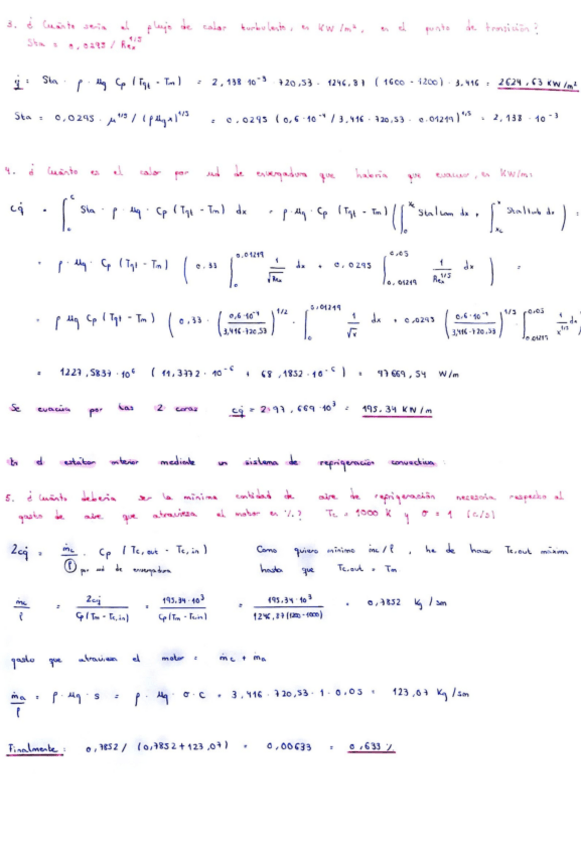 3. ¿ Cuánto sería el flujo de calor turbulento, en KW/m², en el punto de transición?
Sta = 0,0295 / Reₓ^1/5
q̇ = Sta · ρ · ug Cp (Tgt - Tm) = 2,138·10⁻³ · 720,53 · 1246,87 (1600 - 1200) · 3,416 = 2624,63 KW/m²
Sta = 0,0295 · μ^1/5 / (ρ ug x)^1/5 = 0,0295 (0,6·10⁻⁴ / 3,416 · 720,53 · 0.01219)^1/5 = 2,138·10⁻³
4. ¿ Cuánto es el calor por ud de envergadura que habría que evacuar, en KW/m?
cq̇ = ∫₀^c Sta · ρ · ug · Cp (Tgt - Tm) dx = ρ · ug · Cp (Tgt - Tm) ( ∫₀^xt Sta|lam dx + ∫xt^c Sta|turb dx ) =
= ρ · ug · Cp (Tgt - Tm) ( 0.33 ∫₀^0,01219 1/√Reₓ dx + 0,0295 ∫0,01219^0,05 1/Reₓ^1/5 dx ) =
= ρ ug Cp (Tgt - Tm) ( 0,33 · (0,6·10⁻⁴ / 3,416·720,53)^1/2 · ∫₀^0,01219 1/√x dx + 0,0295 (0,6·10⁻⁴ / 3,416·720,53)^1/5 · ∫0,01219^0,05 1/x^1/5 dx )
= 1227,5837·10⁶ (11,3772·10⁻⁶ + 68,1852·10⁻⁶) = 97669,54 W/m
Se evacúa por las 2 caras cq̇ = 2·97,669·10³ = 195.34 KN/m
En el estátor interior mediante un sistema de refrigeración convectiva:
5. ¿ Cuánto debería ser la mínima cantidad de aire de refrigeración necesaria respecto al
gasto de aire que atraviesa el motor en %? Tc = 1000 K y σ = 1 (c/s)
2cq̇ = ṁc/ℓ · Cp (Tc,out - Tc,in) Como quiero mínimo ṁc/ℓ, he de hacer Tc,out máxima
por ud de envergadura hasta que Tc,out = Tm
ṁc/ℓ = 2cq̇ / Cp(Tm - Tc,in) = 195,34·10³ / Cp(Tm - Tc,in) = 195,34·10³ / 1246,87(1200 - 1000) = 0,7852 Kg/sm
gasto que atraviesa el motor = ṁc + ṁa
ṁa/ℓ = ρ · ug · s = ρ · ug · σ · c = 3,416 · 720,53 · 1 · 0.05 = 123,07 Kg/sm
Finalmente: 0,7852 / (0,7852 + 123,07) = 0,00633 = 0,633 %